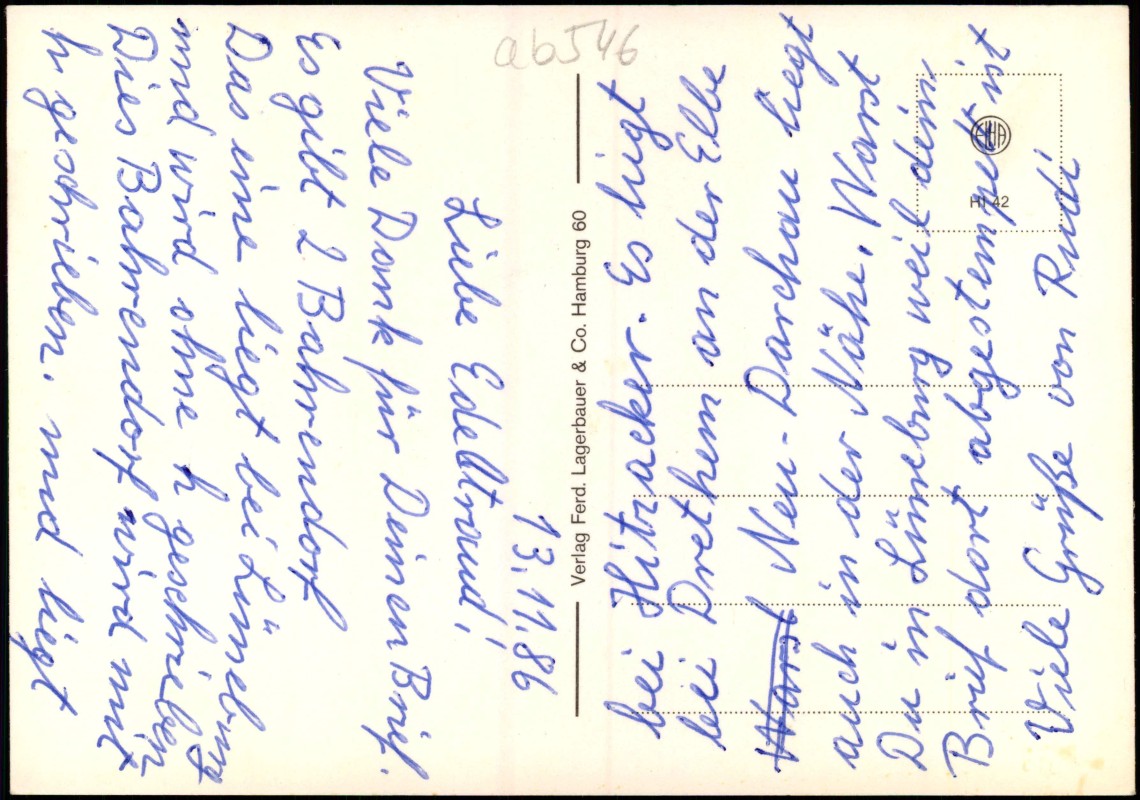 ab546
13.11.86
Liebe Edeltraud!
Viele Dank für Deinen Brief.
Es gibt 2 Bahrendorf
Das eine liegt bei Lüneburg
und wird ohne h geschrieben
Dies Bahrendorf wird mit
h geschrieben. und liegt
Verlag Ferd. Lagerbauer & Co. Hamburg 60
bei Hitzacker. Es liegt
bei Drethem an der Elbe
Warst Neu-Darchau liegt
auch in der Nähe. Warst
Du in Lüneburg weil dein
Brief dort abgestempelt ist
Viele Grüße von Rudi
HI 42